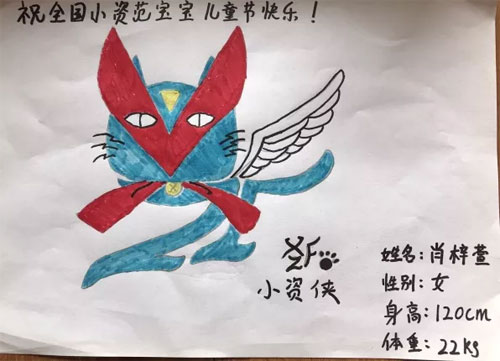 祝全国小资范宝宝儿童节快乐！
XZF
小资侠
姓名：肖梓萱
性别：女
身高：120cm
体重：22kg